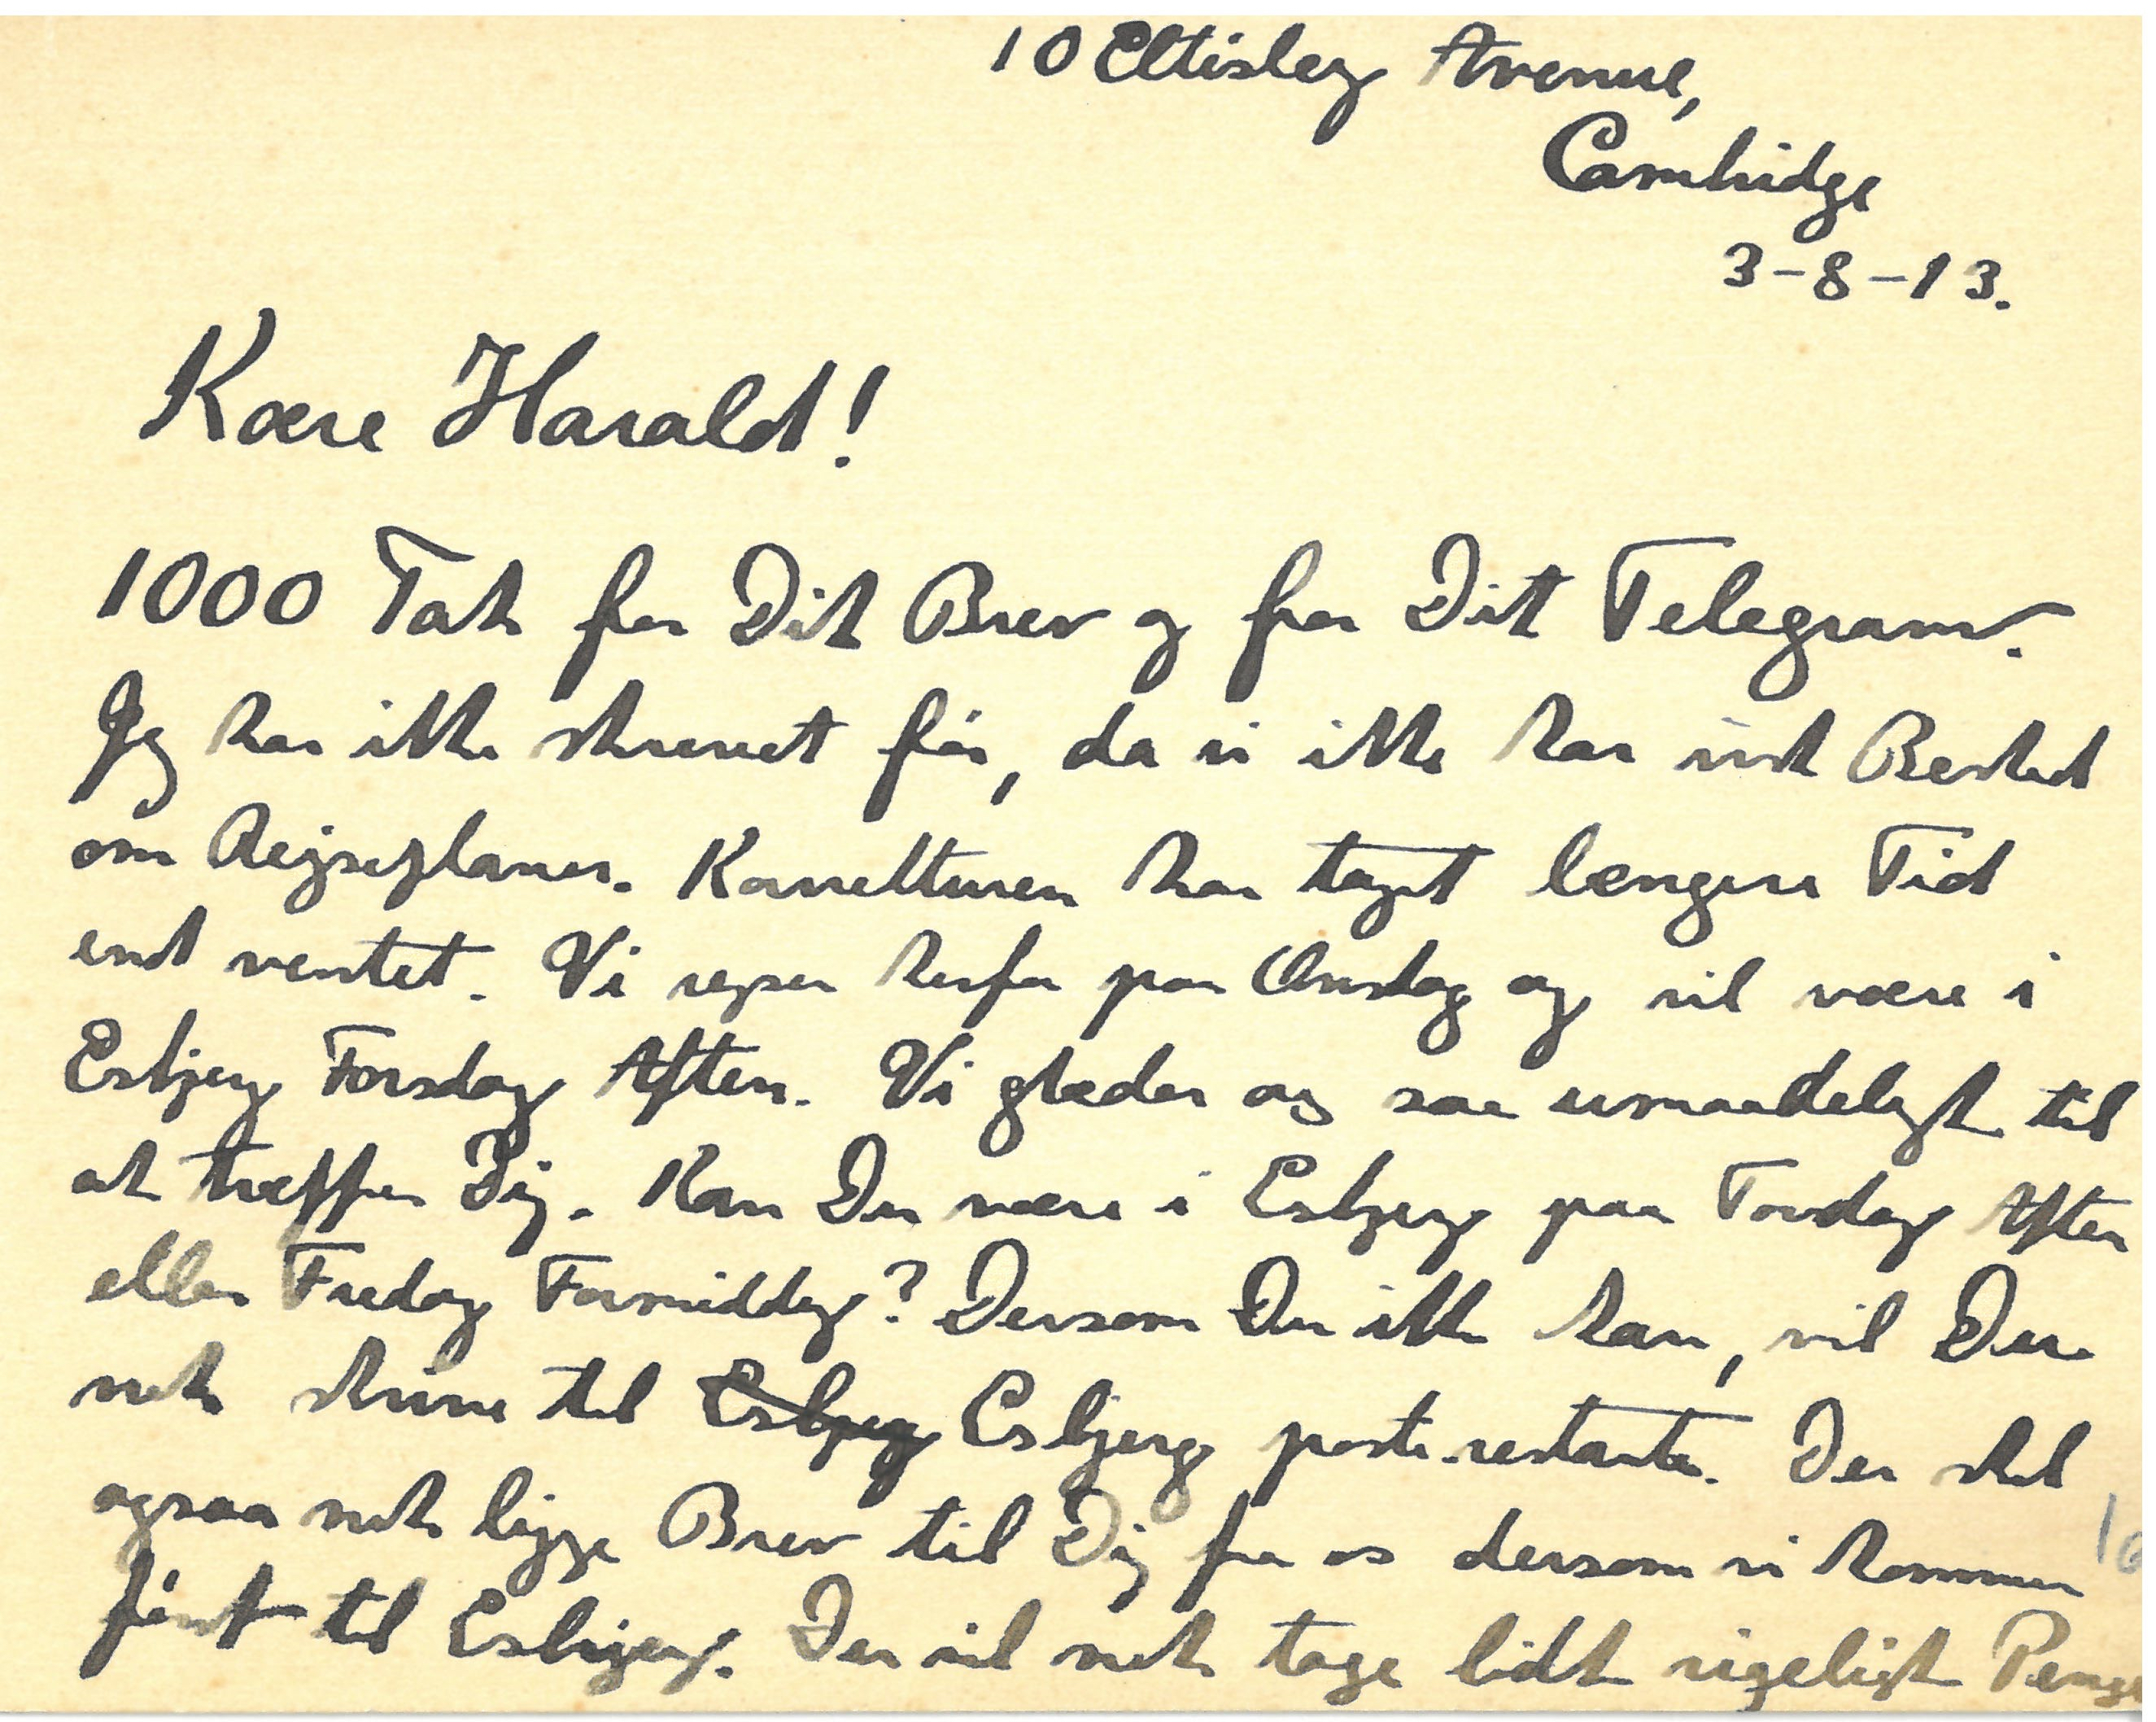 10 Eltisley Avenue,
Cambridge
3-8-13.
Kære Harald!
1000 Tak for Dit Brev og for Dit Telegram.
Jeg har ikke skrevet før, da vi ikke har vidst Besked
om Rejseplaner. Korrekturen har taget længere Tid
end ventet. Vi rejser herfra paa Onsdag og vil være i
Esbjerg Torsdag Aften. Vi glæder os saa umaadeligt til
at træffe Dig. Kan Du være i Esbjerg paa Torsdag Aften
eller Fredag Formiddag? Dersom Du ikke kan, vil Du
nok skrive til Esbjerg Esbjerg poste-restante. Der skal
ogsaa nok ligge Brev til Dig fra os dersom vi kommer
først til Esbjerg. Du vil nok tage lidt rigeligt Penge